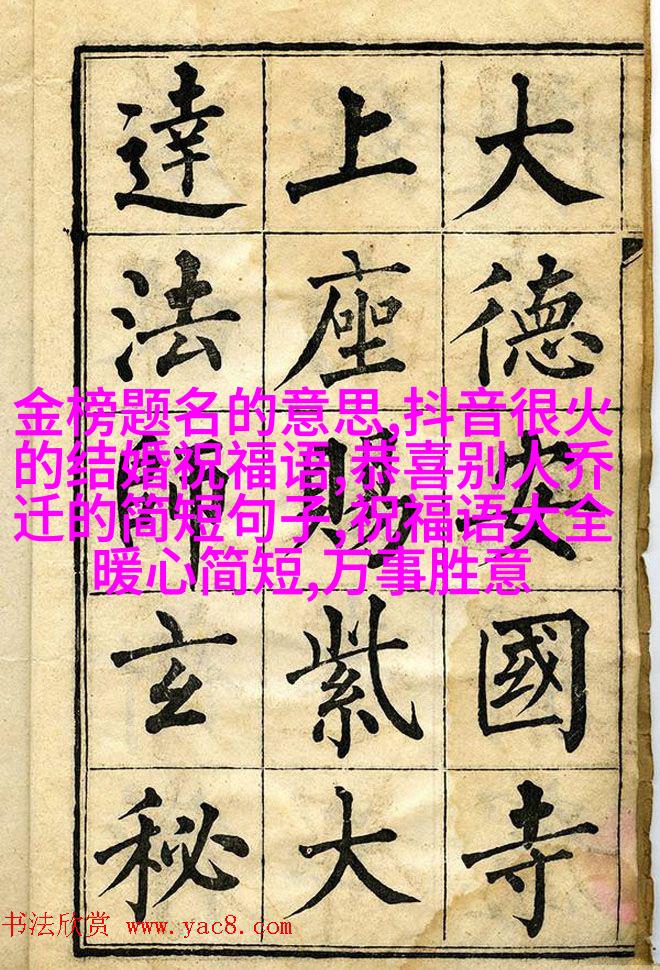 大德安國寺
上座賜紫大
達法師玄秘
金榜题名的意思,抖音很火
的结婚祝福语,恭喜别人乔
迁的简短句子,祝福语大全
暖心简短,万事胜意
书法欣赏 www.yac8.com